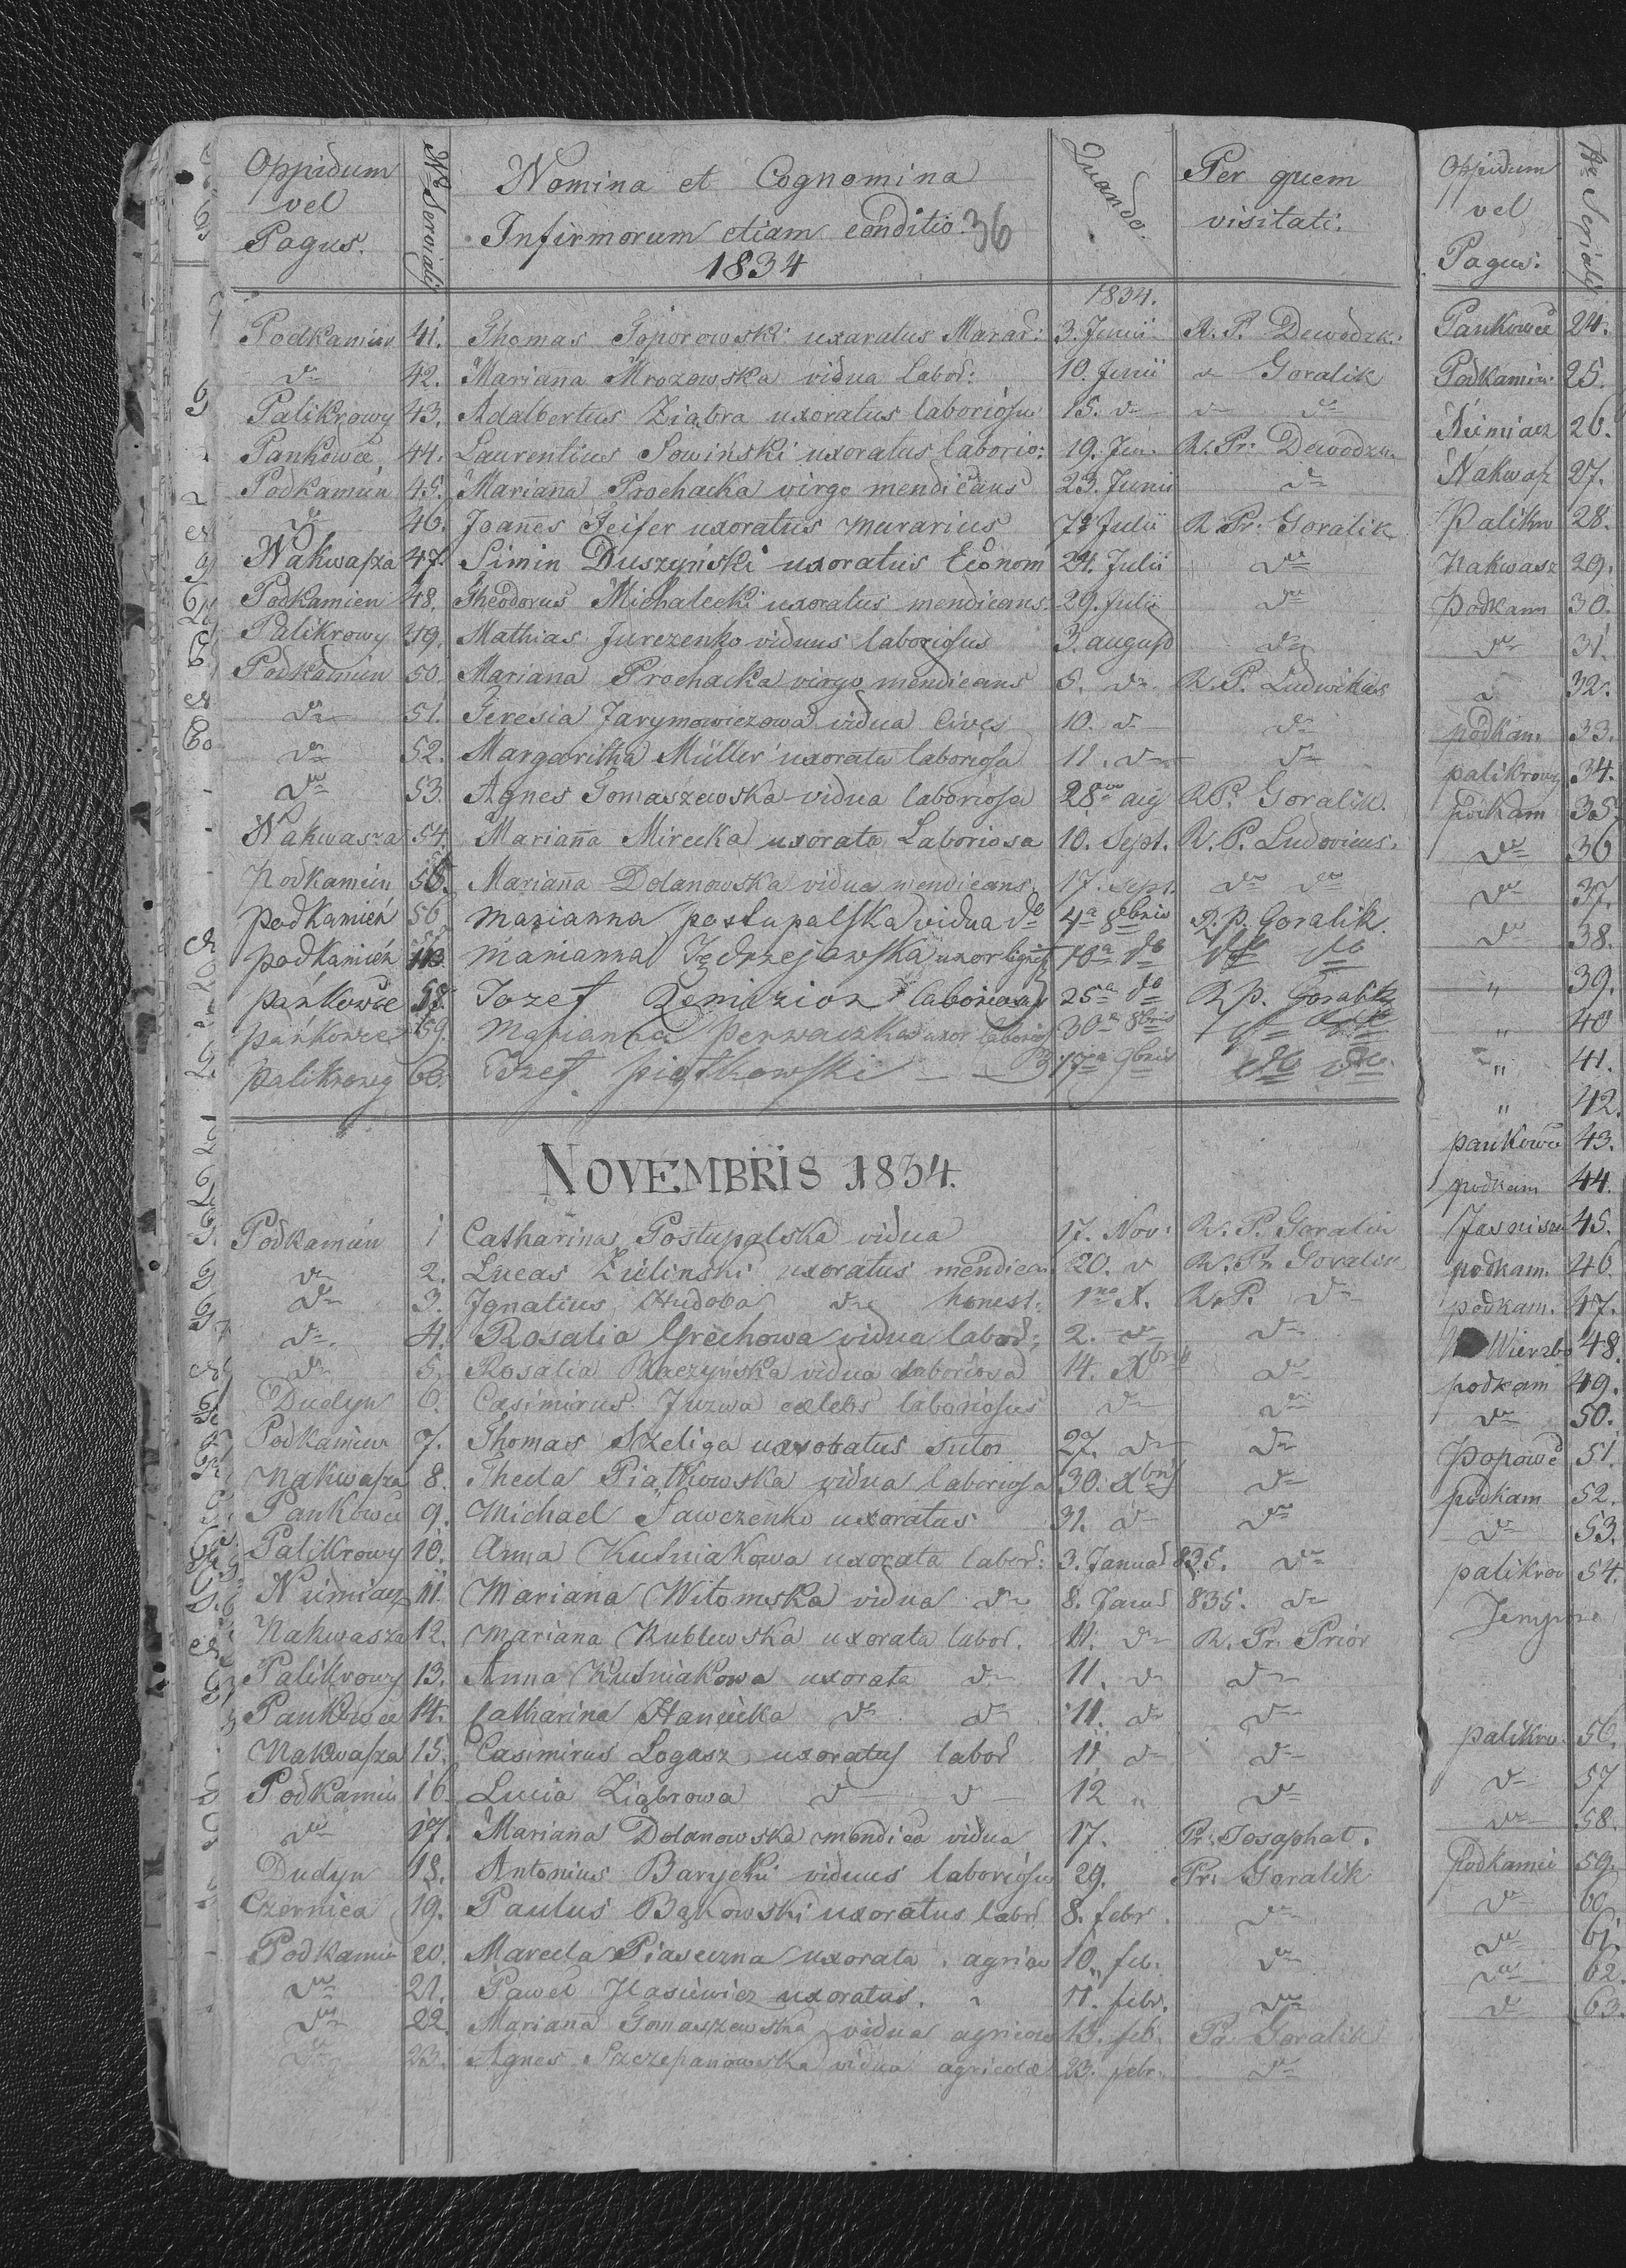 Oppidum vel Pagus. Nrus Serialis Nomina et Cognomina Infirmorum etiam conditio. 36 1834 Quando. Per quem visitati.
1834.
Podkamien 41. Thomas Toporowski uxoratus Marar: 3. Junii R. P. Dewodzk:
dto 42. Mariana Mrozowska vidua labor: 10. Junii Goralik
Palikrowy 43. Adalbertus Ziąbra uxoratus laboriosus 15. dto dto dto
Pankowce 44. Laurentius Sowiński uxoratus laborio: 19. Jun. R. Pr: Dewodzk
Podkamień 45. Mariana Prochacka virgo mendicans 23. Junii dto
dto 46. Joannes Feifer uxoratus murarius 7 Julii R. Pr: Goralik
Nakwasza 47. Simin Duszyński uxoratus Econom 24. Julii dto
Podkamien 48. Theodorus Michalecki uxoratus mendicans. 29. Julii dto
Palikrowy 49. Mathias Jurezenko viduus laboriosus 3. august dto
Podkamien 50. Mariana Prochacka virgo mendicans 5. dto R. P. Ludwikus
dto 51. Teresia Jarymowiczowa vidua cives 10. dto dto
dto 52. Margaritha Müller uxorata laboriosa 11. dto dto
dto 53. Agnes Tomaszewska vidua laboriosa 28 aug R.P. Goralik.
Nakwasza 54. Marianna Mirecka uxorata Laboriosa 10. Sept. R. P. Ludovicus.
Podkamień 55. Marianna Dolanowska vidua mendicans. 17. Sept. dto dto
podkamień 56 Marianna postupalska vidua do 4a 8bris R. p. Goralik.
podkamień Marianna Jędrzejowska uxor 10a do do do
pańkowce 58. Jozef laborios 25a do R p. Goralik
pańkowce 59. Marianna perwaczka uxor laborios 30a 8bris do do
palikrowy 60. Jozef piątkowski — — 17a 9bris do do
NOVEMBRIS 1834.
Podkamień 1 Catharina Postupalska vidua 17. Nov: R. P. Goralik
dto 2. Lucas Zielinski uxoratus mendica. 20. dto R. Pr. Goralik
dto 3. Ignatius Hudoba dto honest: 1ma X. R. P. dto
dto 4. Rosalia Grechowa vidua labor: 2. dto dto
dto 5. Rosalia Raczyńska vidua laboriosa 14. Xbris dto
Dudyn 6. Casimirus Juzwa celebs laboriosus dto dto
Podkamień 7. Thomas Szeliga uxoratus sutor 27. dto dto
Nakwasza 8. Thecla Piątkowska vidua laboriosa 30. Xbris dto
Pankowce 9. Michael Sawczenko uxoratus 31. dto dto
Palikrowy 10. Anna Kuśniakowa uxorata labor: 3. Januar 835. dto
Niemiacz 11. Mariana Witomska vidua dto 8. Januar 835. dto
Nakwasza 12. Mariana Kublewska uxorata labor. 11. dto R. Pr. Prior
Palikrowy 13. Anna Kuśniakowa uxorata dto 11. dto dto
Pankowce 14. Catharina Hanicka dto dto 11. dto dto
Nakwasza 15. Casimirus Logasz uxoratus labor 11 dto dto
Podkamień 16. Lucia Ziąbrowa dto dto 12 „ dto
dto 17. Mariana Dolanowska mendica vidua 17. Pr: Josaphat.
Dudyn 18. Antonius Barycki viduus laboriosus 29. Pr: Goralik
Czernica 19. Paulus Bąkowski uxoratus labr. 8. febr. dto
Podkamień 20. Marcela Piaseczna uxorata agrico 10. feb. dto
dto 21. Pawel uxoratus. 11. febr. dto
dto 22. Marianna Tomaszewska vidua agricola 13. feb. Pr. Goralik
dto 23. Agnes Szczepanowska vidua agricolae 23. febr. dto
Oppidum vel Pagus: Nr Serialis
Pankowce 24.
Podkamień 25.
Niemiacz 26.
Nakwas 27.
Palikro 28.
Nakwasz 29.
podkam 30.
dto 31.
32.
podkam. 33.
palikrowy 34.
podkam 35.
dto 36
dto 37.
dto 38.
„ 39.
„ 40
„ 41.
„ 42.
pankowce 43.
podkam 44.
45.
podkam. 46.
podkam. 47.
Wierzbo 48.
podkam 49.
dto 50.
Popowce 51.
podkam 52.
dto 53.
palikrow 54.
Tempore
palikro 56.
dto 57
dto 58.
Podkamie 59.
dto 60
dto 61.
dto 62.
dto 63.